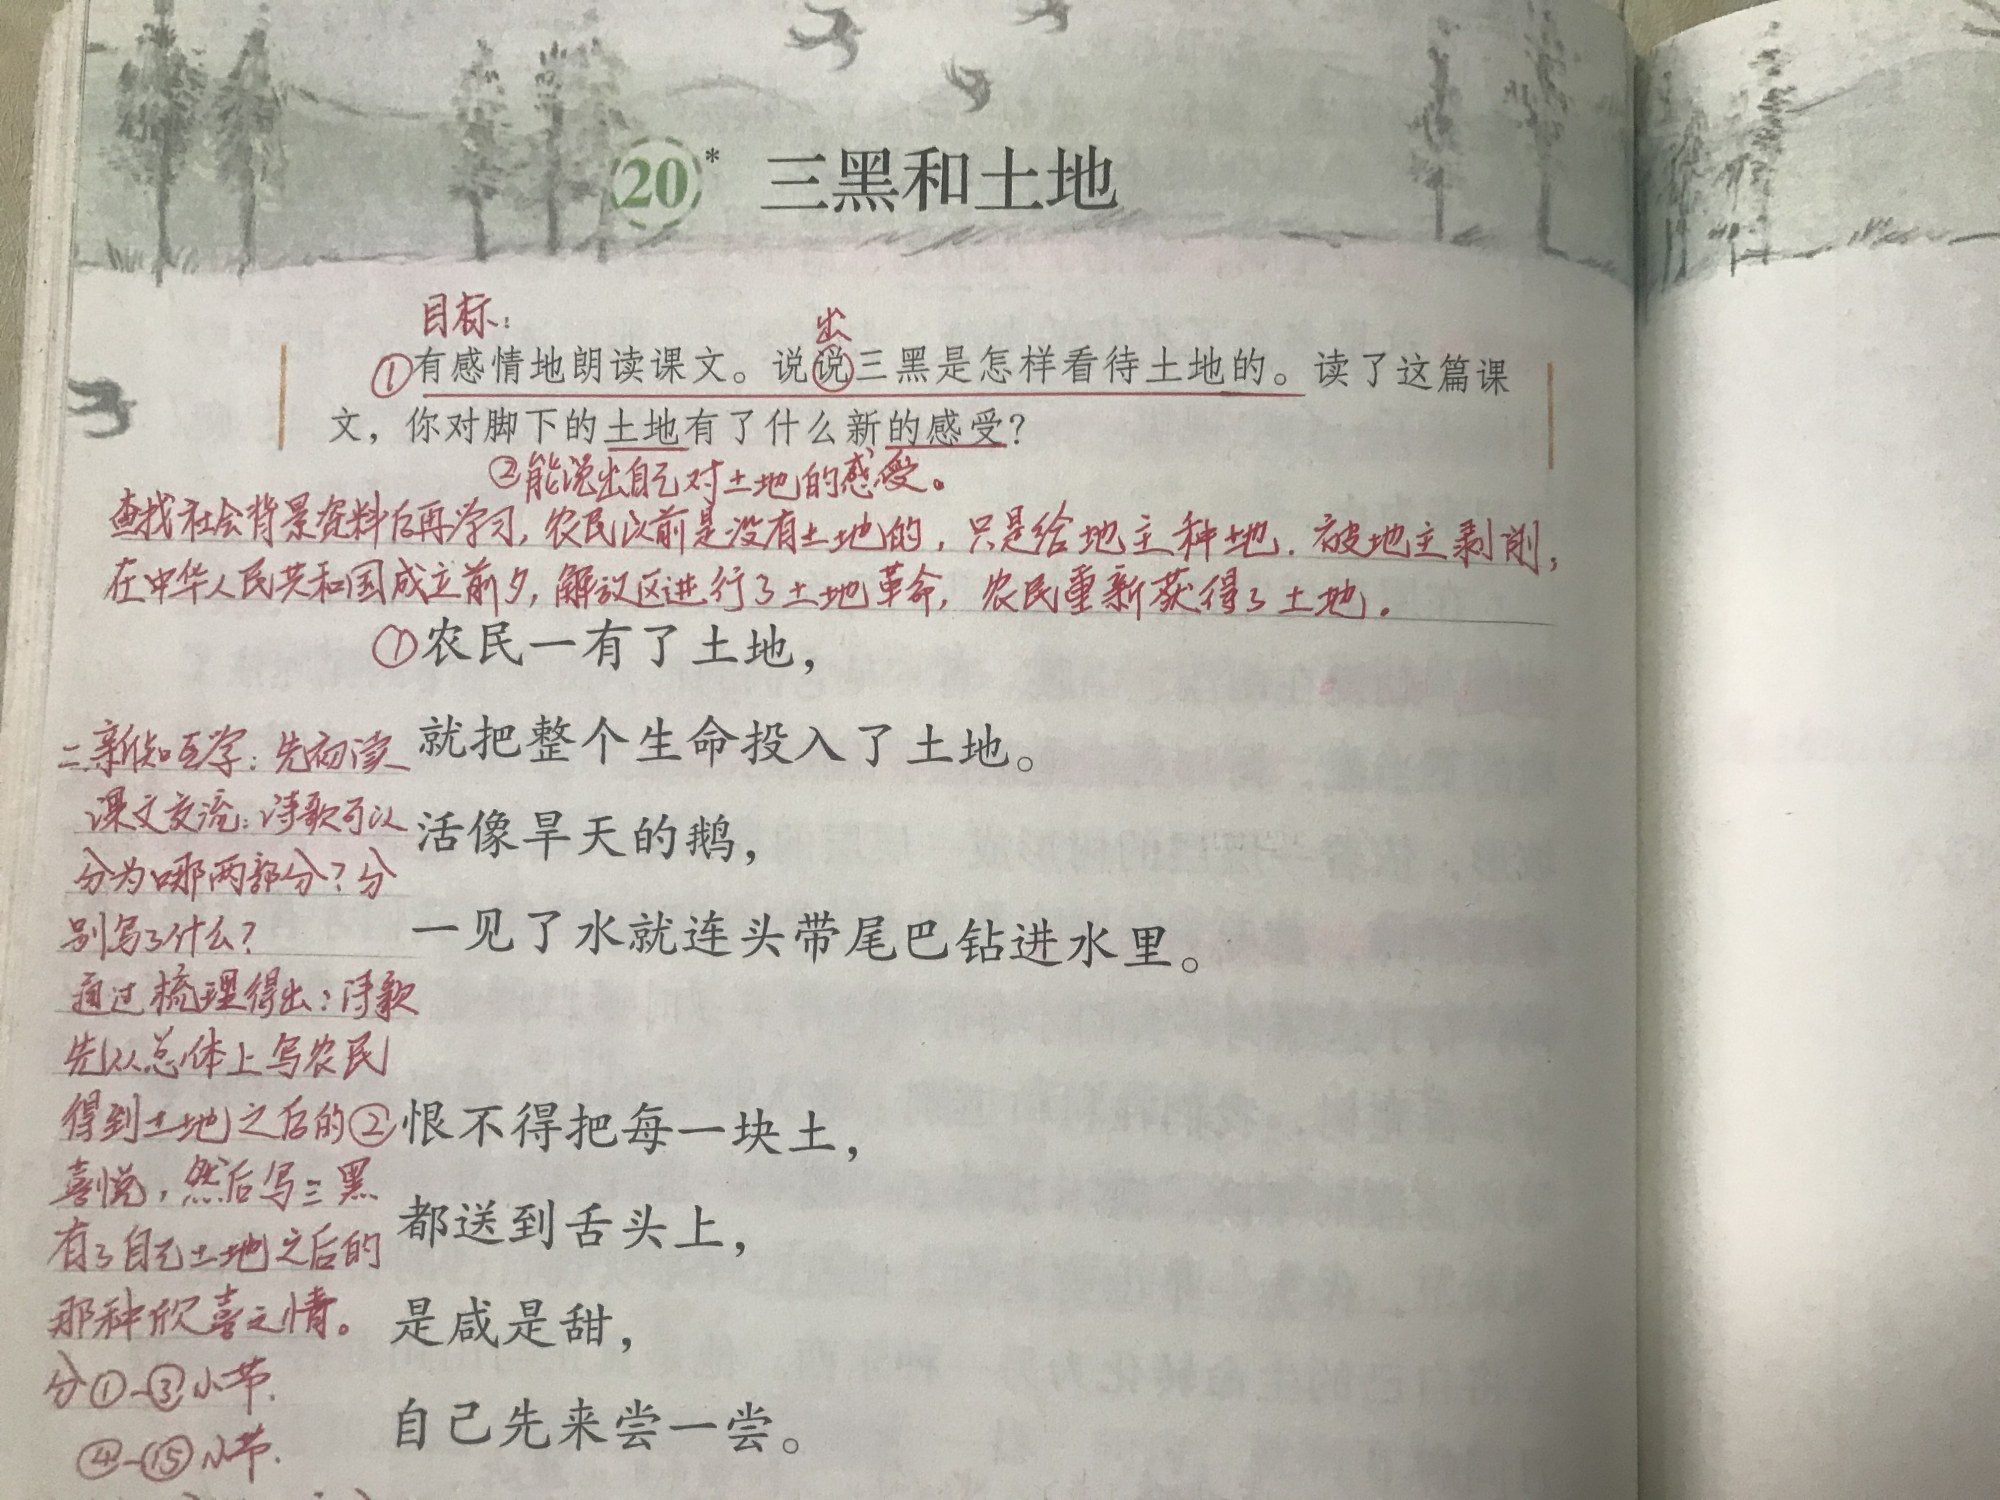 20* 三黑和土地
目标：
出
①有感情地朗读课文。说说三黑是怎样看待土地的。读了这篇课
文，你对脚下的土地有了什么新的感受？
②能说出自己对土地的感受。
查找社会背景资料后再学习，农民以前是没有土地的，只是给地主种地．被地主剥削，
在中华人民共和国成立前夕，解放区进行了土地革命，农民重新获得了土地．
①农民一有了土地，
就把整个生命投入了土地。
活像旱天的鹅，
一见了水就连头带尾巴钻进水里。
②恨不得把每一块土，
都送到舌头上，
是咸是甜，
自己先来尝一尝。
二新知互学：先初读
课文交流：诗歌可以
分为哪两部分？分
别写了什么？
通过梳理得出：诗歌
先从总体上写农民
得到土地之后的
喜悦，然后写三黑
有了自己土地之后的
那种欣喜之情。
分①-③小节．
④-⑮小节．